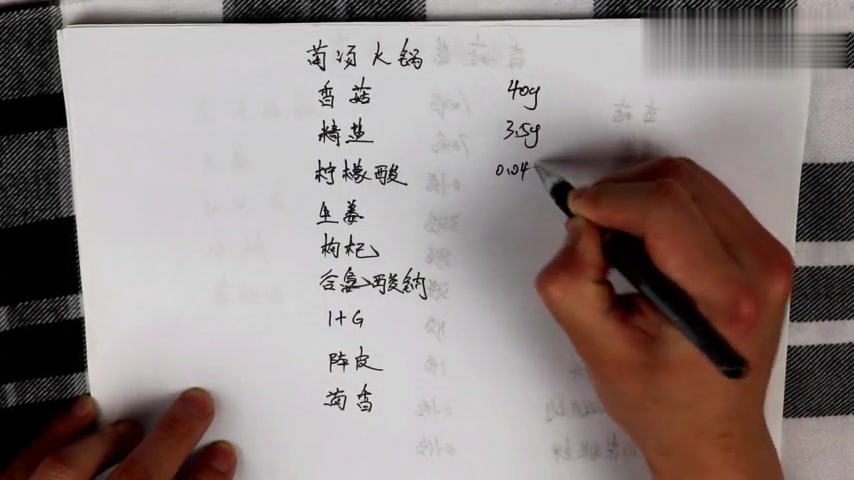 菌汤火锅
香菇 40g
精盐 3.5g
柠檬酸 0.04
生姜
枸杞
谷氨酸钠
I+G
陈皮
茴香